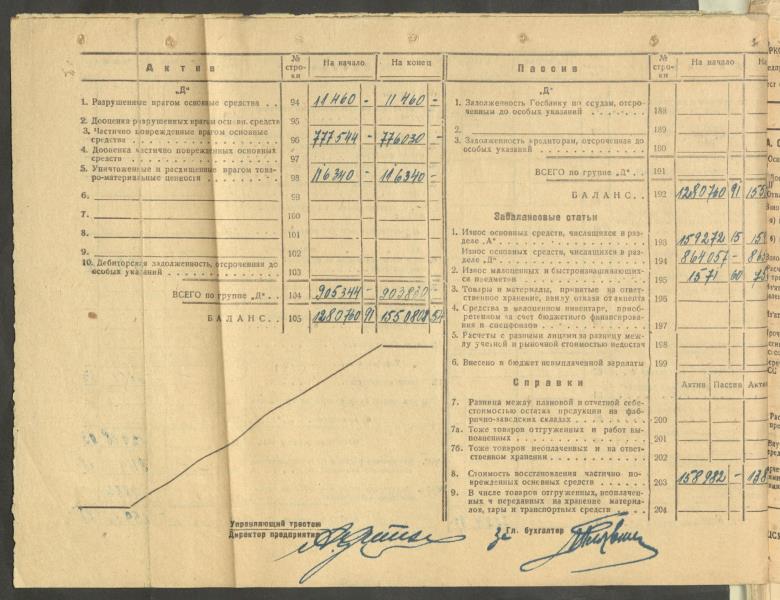 Актив
№ стро-ки
На начало
На конец
„Д“
1. Разрушенные врагом основные средства . . 94 11460 - 11460 -
2. Дооценка разрушенных врагом основн. средств 95
3. Частично поврежденные врагом основные
средства . . . 96 777544 - 776030 -
4. Дооценка частично поврежденных основных
средств . . . 97
5. Уничтоженные и расхищенные врагом това-
ро-материальные ценности . . . 98 116340 - 116340 -
6. 99
7. 100
8. 101
9. 102
10. Дебиторская задолженность, отсроченная до
особых указаний . . . 103
ВСЕГО по группе „Д“ . . 104 905344 - 903830 -
БАЛАНС . . 105 1280760 91 1550808 54
Пассив
№ стро-ки
На начало
На
„Д“
1. Задолженность Госбанку по ссудам, отсро-
ченным до особых указаний . . . 188
2. 189
3. Задолженность кредиторам, отсроченная до
особых указаний . . . 190
ВСЕГО по группе „Д“ . . 191
БАЛАНС . . 192 1280760 91 155
Забалансовые статьи
1. Износ основных средств, числящихся в раз-
деле „А“ . . . 193 159272 15
Износ основных средств, числящихся в раз-
деле „Д“ . . . 194 864057 - 86
2. Износ малоценных и быстроизнашивающих-
ся предметов . . . 195 1571 60
3. Товары и материалы, принятые на ответ-
ственное хранение, ввиду отказа от акцепта 196
4. Средства в малоценном инвентаре, приоб-
ретенном за счет бюджетного финансирова-
ния и спецфондов . . . 197
5. Расчеты с разными лицами за разницу меж-
ду учетной и рыночной стоимостью недостач 198
6. Внесено в бюджет невыплаченной зарплаты 199
Справки
Актив Пассив Акти
7. Разница между плановой и отчетной себе-
стоимостью остатка продукции на фаб-
рично-заводских складах . . . 200
7а. Тоже товаров отгруженных и работ вы-
полненных . . . 201
7б. Тоже товаров неоплаченных и на ответ-
ственном хранении . . . 202
8. Стоимость восстановления частично по-
врежденных основных средств . . . 203 158982 - 138
9. В числе товаров отгруженных, неоплачен-
ных и переданных на хранение материа-
лов, тары и транспортных средств . . . 204
Управляющий трестом
Директор предприятия
За Гл. бухгалтер